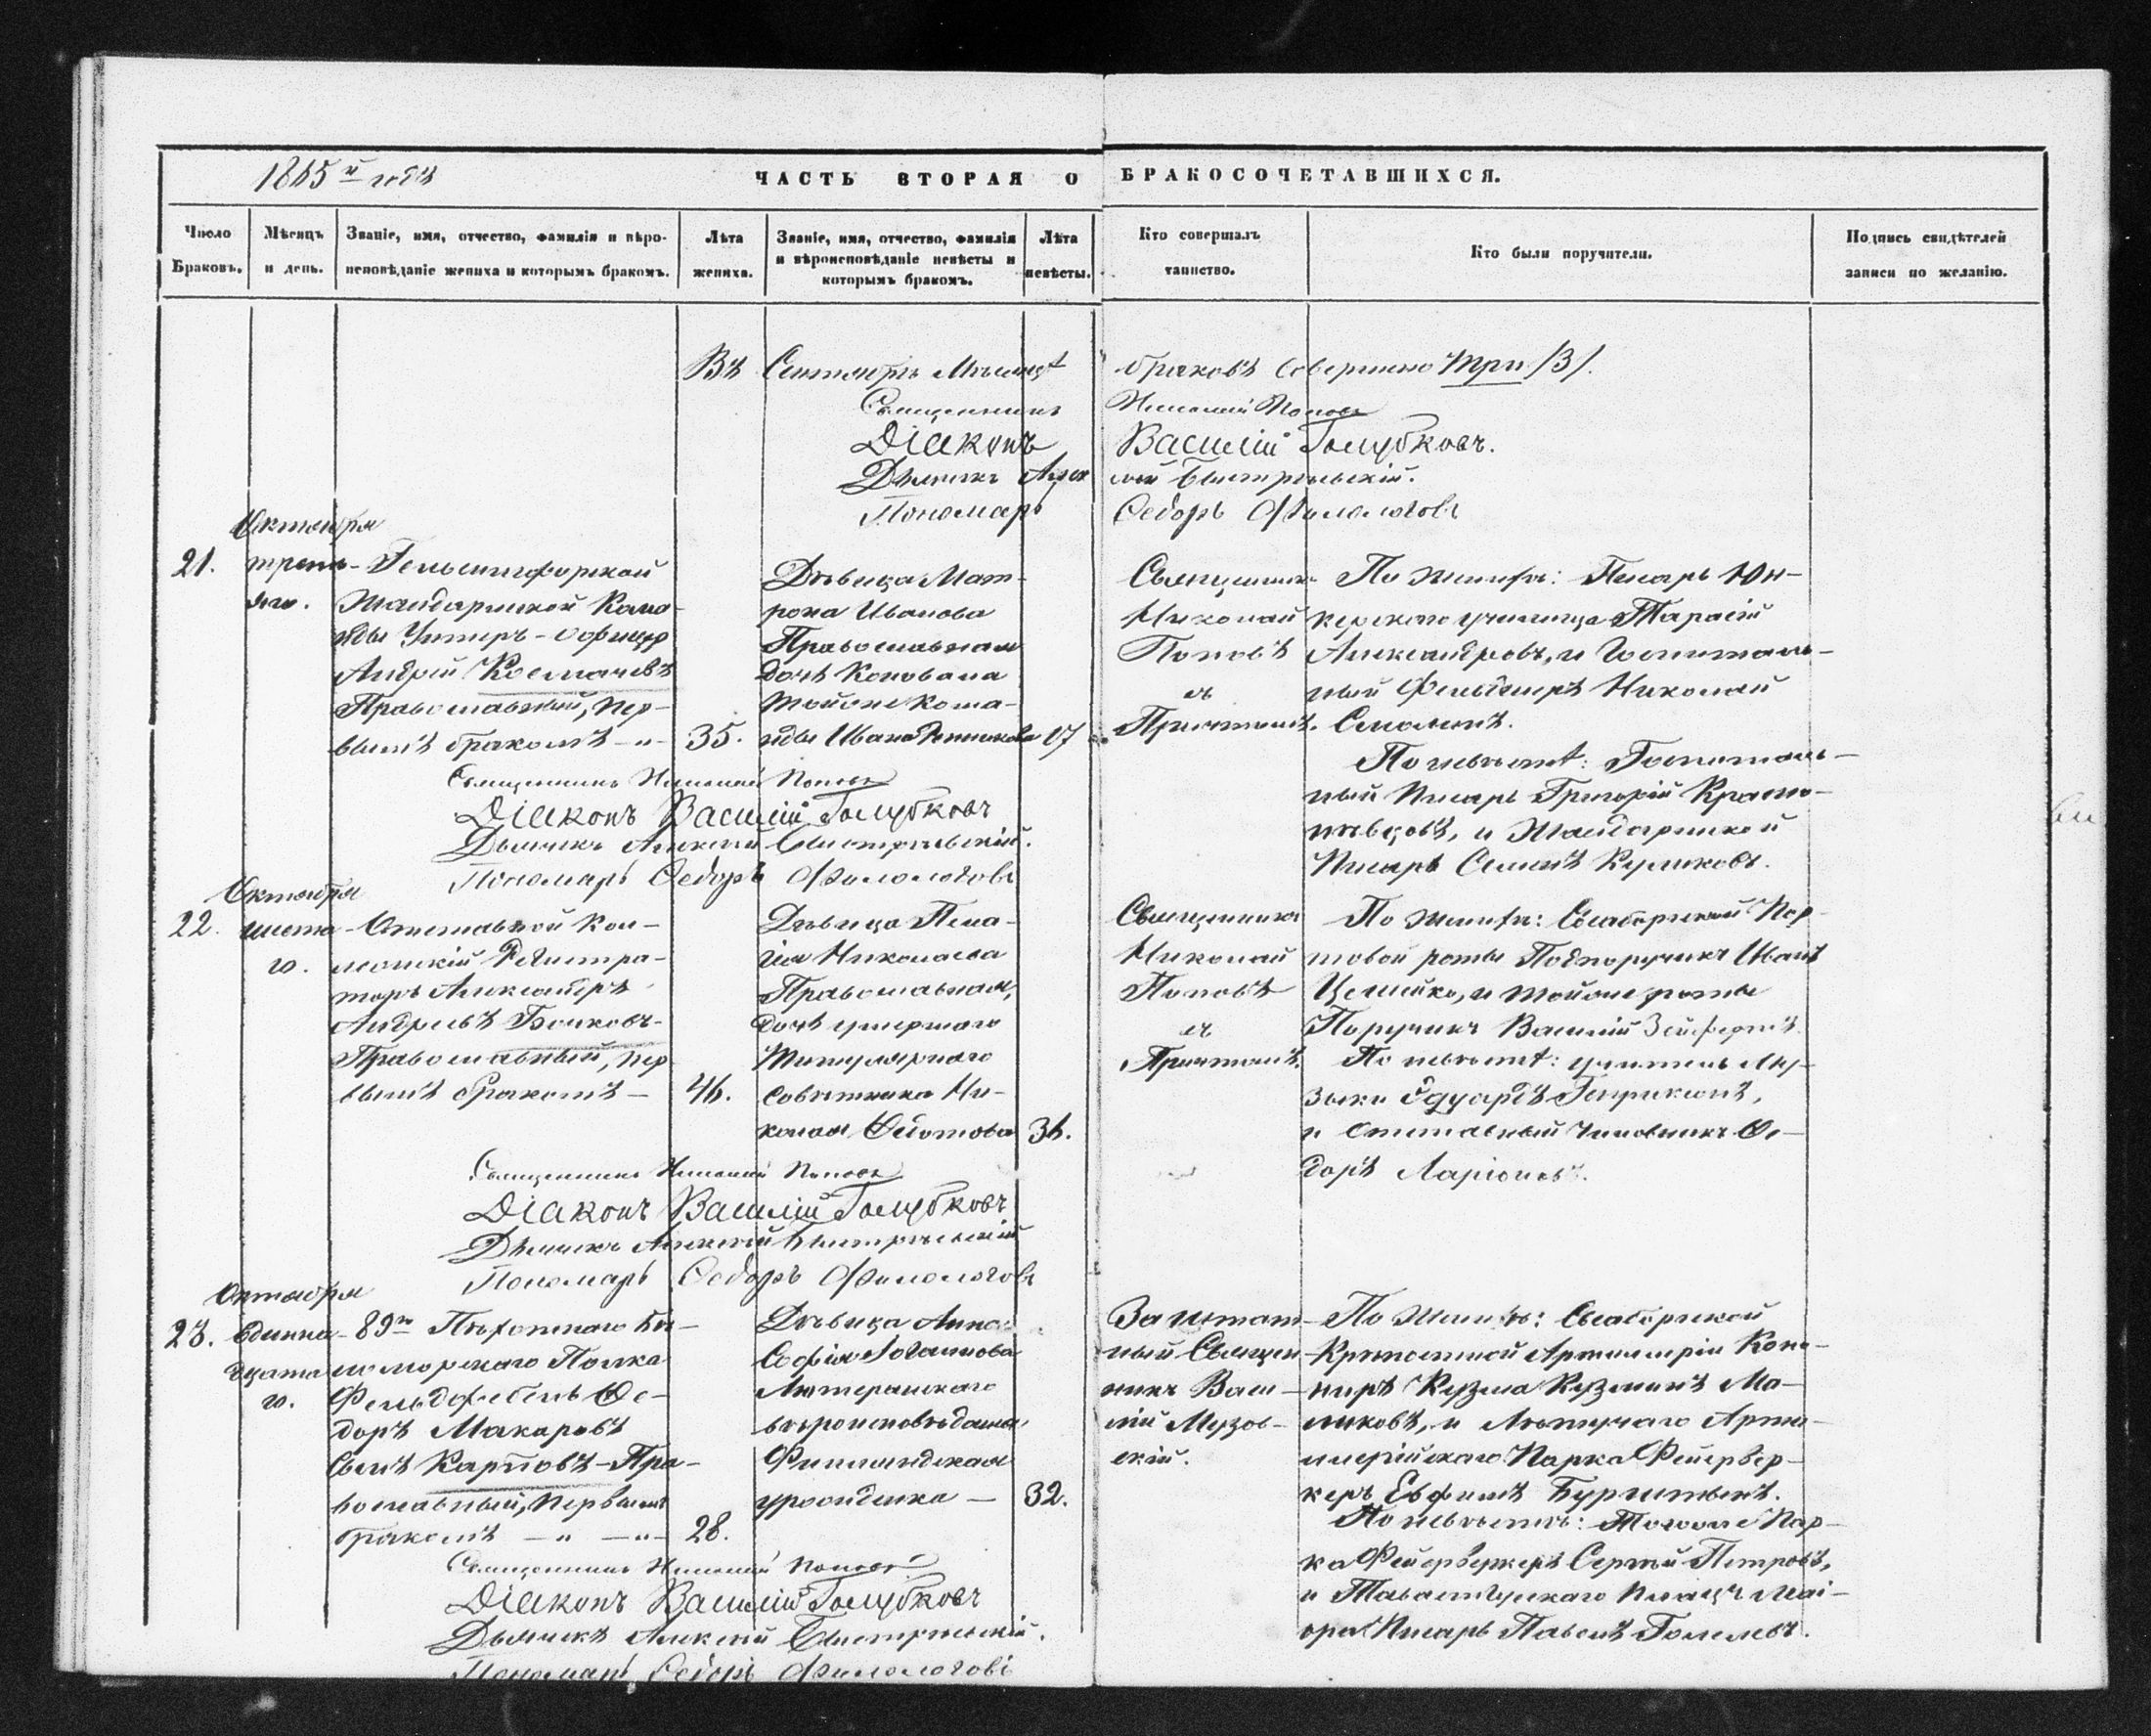 1865 й годъ
ЧАСТЬ ВТОРАЯ О БРАКОСОЧЕТАВШИХСЯ.
Число Браковъ.
Мѣсяцъ и день.
Званіе, имя, отчество, фамилія и вѣро-
исповѣданіе жениха и которымъ бракомъ.
Лѣта жениха.
Званіе, имя, отчество, фамилія
и вѣроисповѣданіе невѣсты и
которымъ бракомъ.
Лѣта невѣсты.
Кто совершалъ таинство.
Кто были поручители.
Подпись свидѣтелей
записи по желанію.
Въ Сентябрѣ Мѣсяцѣ браковъ совершено три /3/.
Священникъ Николай Поповъ
Діаконъ Василій Голубковъ.
Дьячекъ Алексѣй Быстрѣевскій.
Пономарь Ѳедоръ Филологовъ
21.
Октября
треть-
яго.
Гельсингфорской
Жандармской Кома-
нды Унтеръ-офицеръ
Андрей Космачевъ
Православный, пер-
вымъ бракомъ -"-
35.
Дѣвица Мат-
рона Иванова
Православная
дочь Коновала
тойже Кома-
нды Ивана
17
Священникъ
Николай
Поповъ
съ
Причтомъ.
По женихѣ: Писарь Юн-
керскаго училища Тарасій
Александровъ, и Госпиталь-
ный Фельдшеръ Николай
Смолинъ.
По невѣстѣ: Госпиталь-
ный Писарь Григорій Красно-
пѣвцовъ, и Жандармской
Писарь Семенъ Куликовъ.
Священникъ Николай Поповъ
Діаконъ Василій Голубковъ
Дьячекъ Алексѣй Быстрѣевскій.
Пономарь Ѳедоръ Филологовъ
22.
Октября
шеста-
го.
Отставной Кол-
лежскій Регистра-
торъ Александръ
Андреевъ Бочковъ-
Православный, пер-
вымъ бракомъ -
46.
Дѣвица Пела-
гія Николаева
Православная,
дочь умершаго
Титулярнаго
Совѣтника Ни-
колая Ѳедотова
36.
Священникъ
Николай
Поповъ
съ
Причтомъ.
По женихѣ: Свеаборгской Пор-
товой роты Подпоручикъ Иванъ
и тойже роты
Поручикъ Василій Зейфертъ.
По невѣстѣ: учитель Му-
зыки Эдуардъ Генриксонъ,
и отставный Чиновникъ Ѳе-
доръ Ларіоновъ.
Священникъ Николай Поповъ
Діаконъ Василій Голубковъ
Дьячекъ Алексѣй Быстрѣевскій
Пономарь Ѳедоръ Филологовъ
23.
Октября
Одинна-
дцата
го.
89го Пѣхотнаго Бѣ-
ломорскаго Полка
Фельдфебель Ѳе-
доръ Макаровъ
Сынъ Карповъ - Пра-
вославный, первымъ
бракомъ - " - " -
28.
Дѣвица Анна
Софія Іоганнова
Лютеранскаго
вѣроисповѣданія
Финляндская
уроженка -
32.
Заштат-
ный Священ-
никъ Васи-
лій Музов-
скій.
По женихѣ: Свеаборгской
Крѣпостной Артиллеріи Кано-
ниръ Кузма Кузминъ Ма-
ликовъ, и Летучаго Арти-
лерійскаго Парка Фейервер-
керъ Ефимъ Бурмистъ.
По невѣстѣ: Тогоже Пар-
ка Фейерверкеръ Сергѣй Петровъ,
и Тавастгускаго Плацъ Маі-
ора Писарь Павелъ Големевъ.
Священникъ Николай Поповъ
Діаконъ Василій Голубковъ
Дьячекъ Алексѣй Быстрѣевскій.
Пономарь Ѳедоръ Филологовъ